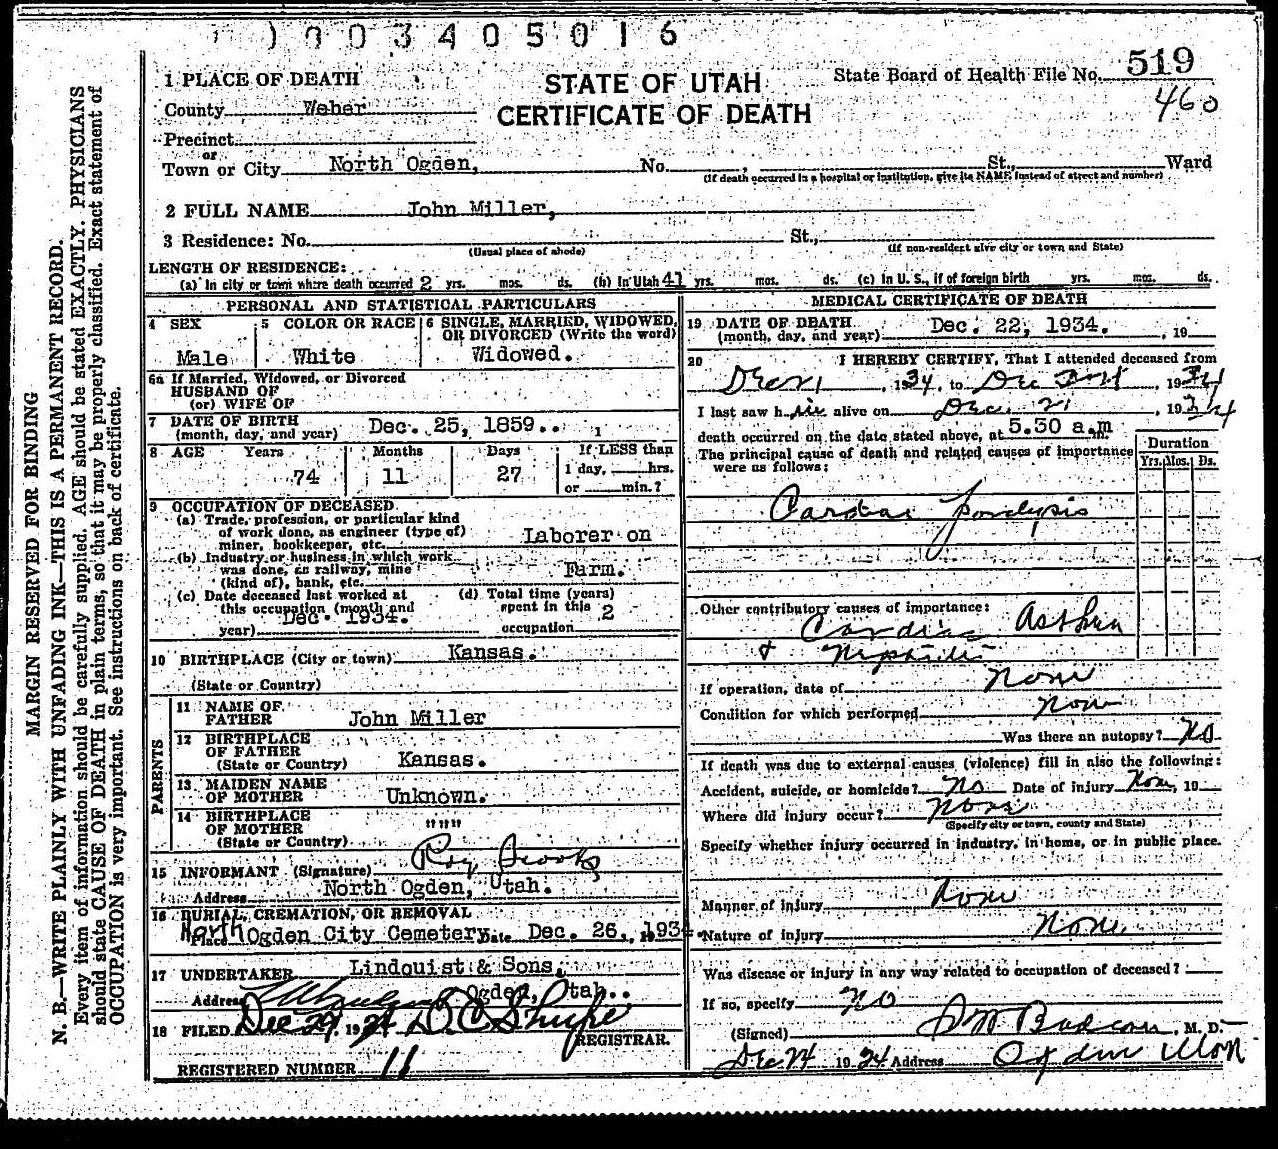 003405016
1 PLACE OF DEATH
STATE OF UTAH
CERTIFICATE OF DEATH
State Board of Health File No. 519
460
County Weber
Precinct
or
Town or City North Ogden, No. , St., Ward
(If death occurred in a hospital or institution, give its NAME instead of street and number)
2 FULL NAME John Miller,
3 Residence: No. St.,
(Usual place of abode) (If non-resident give city or town and State)
LENGTH OF RESIDENCE:
(a) In city or town where death occurred 2 yrs. mos. ds. (b) In Utah 41 yrs. mos. ds. (c) In U. S., if of foreign birth yrs. mos. ds.
PERSONAL AND STATISTICAL PARTICULARS
4 SEX
Male
5 COLOR OR RACE
White
6 SINGLE, MARRIED, WIDOWED,
OR DIVORCED (Write the word)
Widowed.
6a If Married, Widowed, or Divorced
HUSBAND OF
(or) WIFE OF
7 DATE OF BIRTH
(month, day, and year) Dec. 25, 1859.
8 AGE Years Months Days If LESS than
74 11 27 1 day, hrs.
or min.?
9 OCCUPATION OF DECEASED
(a) Trade, profession, or particular kind
of work done, as engineer (type of)
miner, bookkeeper, etc. Laborer on
(b) Industry or business in which work
was done, as railway, mine
(kind of), bank, etc. Farm.
(c) Date deceased last worked at
this occupation (month and
year) Dec. 1934.
(d) Total time (years)
spent in this 2
occupation
10 BIRTHPLACE (City or town) Kansas.
(State or Country)
PARENTS
11 NAME OF
FATHER John Miller
12 BIRTHPLACE
OF FATHER
(State or Country) Kansas.
13 MAIDEN NAME
OF MOTHER Unknown.
14 BIRTHPLACE
OF MOTHER
(State or Country) """"
15 INFORMANT (Signature) Roy Brooks
Address North Ogden, Utah.
16 BURIAL, CREMATION, OR REMOVAL
Place North Ogden City Cemetery Date Dec. 26, 1934.
17 UNDERTAKER Lindquist & Sons,
Address Ogden, Utah.
18 FILED Dec 29, 1934 D. C. Shupe
REGISTRAR.
REGISTERED NUMBER 11
MEDICAL CERTIFICATE OF DEATH
19 DATE OF DEATH
(month, day, and year) Dec. 22, 1934. , 19
20 I HEREBY CERTIFY, That I attended deceased from
Dec 1, 1934, to Dec , 1934
I last saw h im alive on Dec. 21, 1934
death occurred on the date stated above, at 5.30 a.m
The principal cause of death and related causes of importance
were as follows:
Duration
Yrs. Mos. Ds.
Cardiac Paralysis
Other contributory causes of importance:
Cardiac Asthma
& Nephritis
If operation, date of None
Condition for which performed None
Was there an autopsy? No
If death was due to external causes (violence) fill in also the following:
Accident, suicide, or homicide? No Date of injury None, 19
Where did injury occur? None
(Specify city or town, county and State)
Specify whether injury occurred in industry, in home, or in public place.
Manner of injury None
Nature of injury None
Was disease or injury in any way related to occupation of deceased?
If so, specify No
(Signed) , M. D.
Dec 24 1934 Address Ogden Utah
MARGIN RESERVED FOR BINDING
N. B.—WRITE PLAINLY WITH UNFADING INK—THIS IS A PERMANENT RECORD.
Every item of information should be carefully supplied. AGE should be stated EXACTLY. PHYSICIANS
should state CAUSE OF DEATH in plain terms, so that it may be properly classified. Exact statement of
OCCUPATION is very important. See instructions on back of certificate.